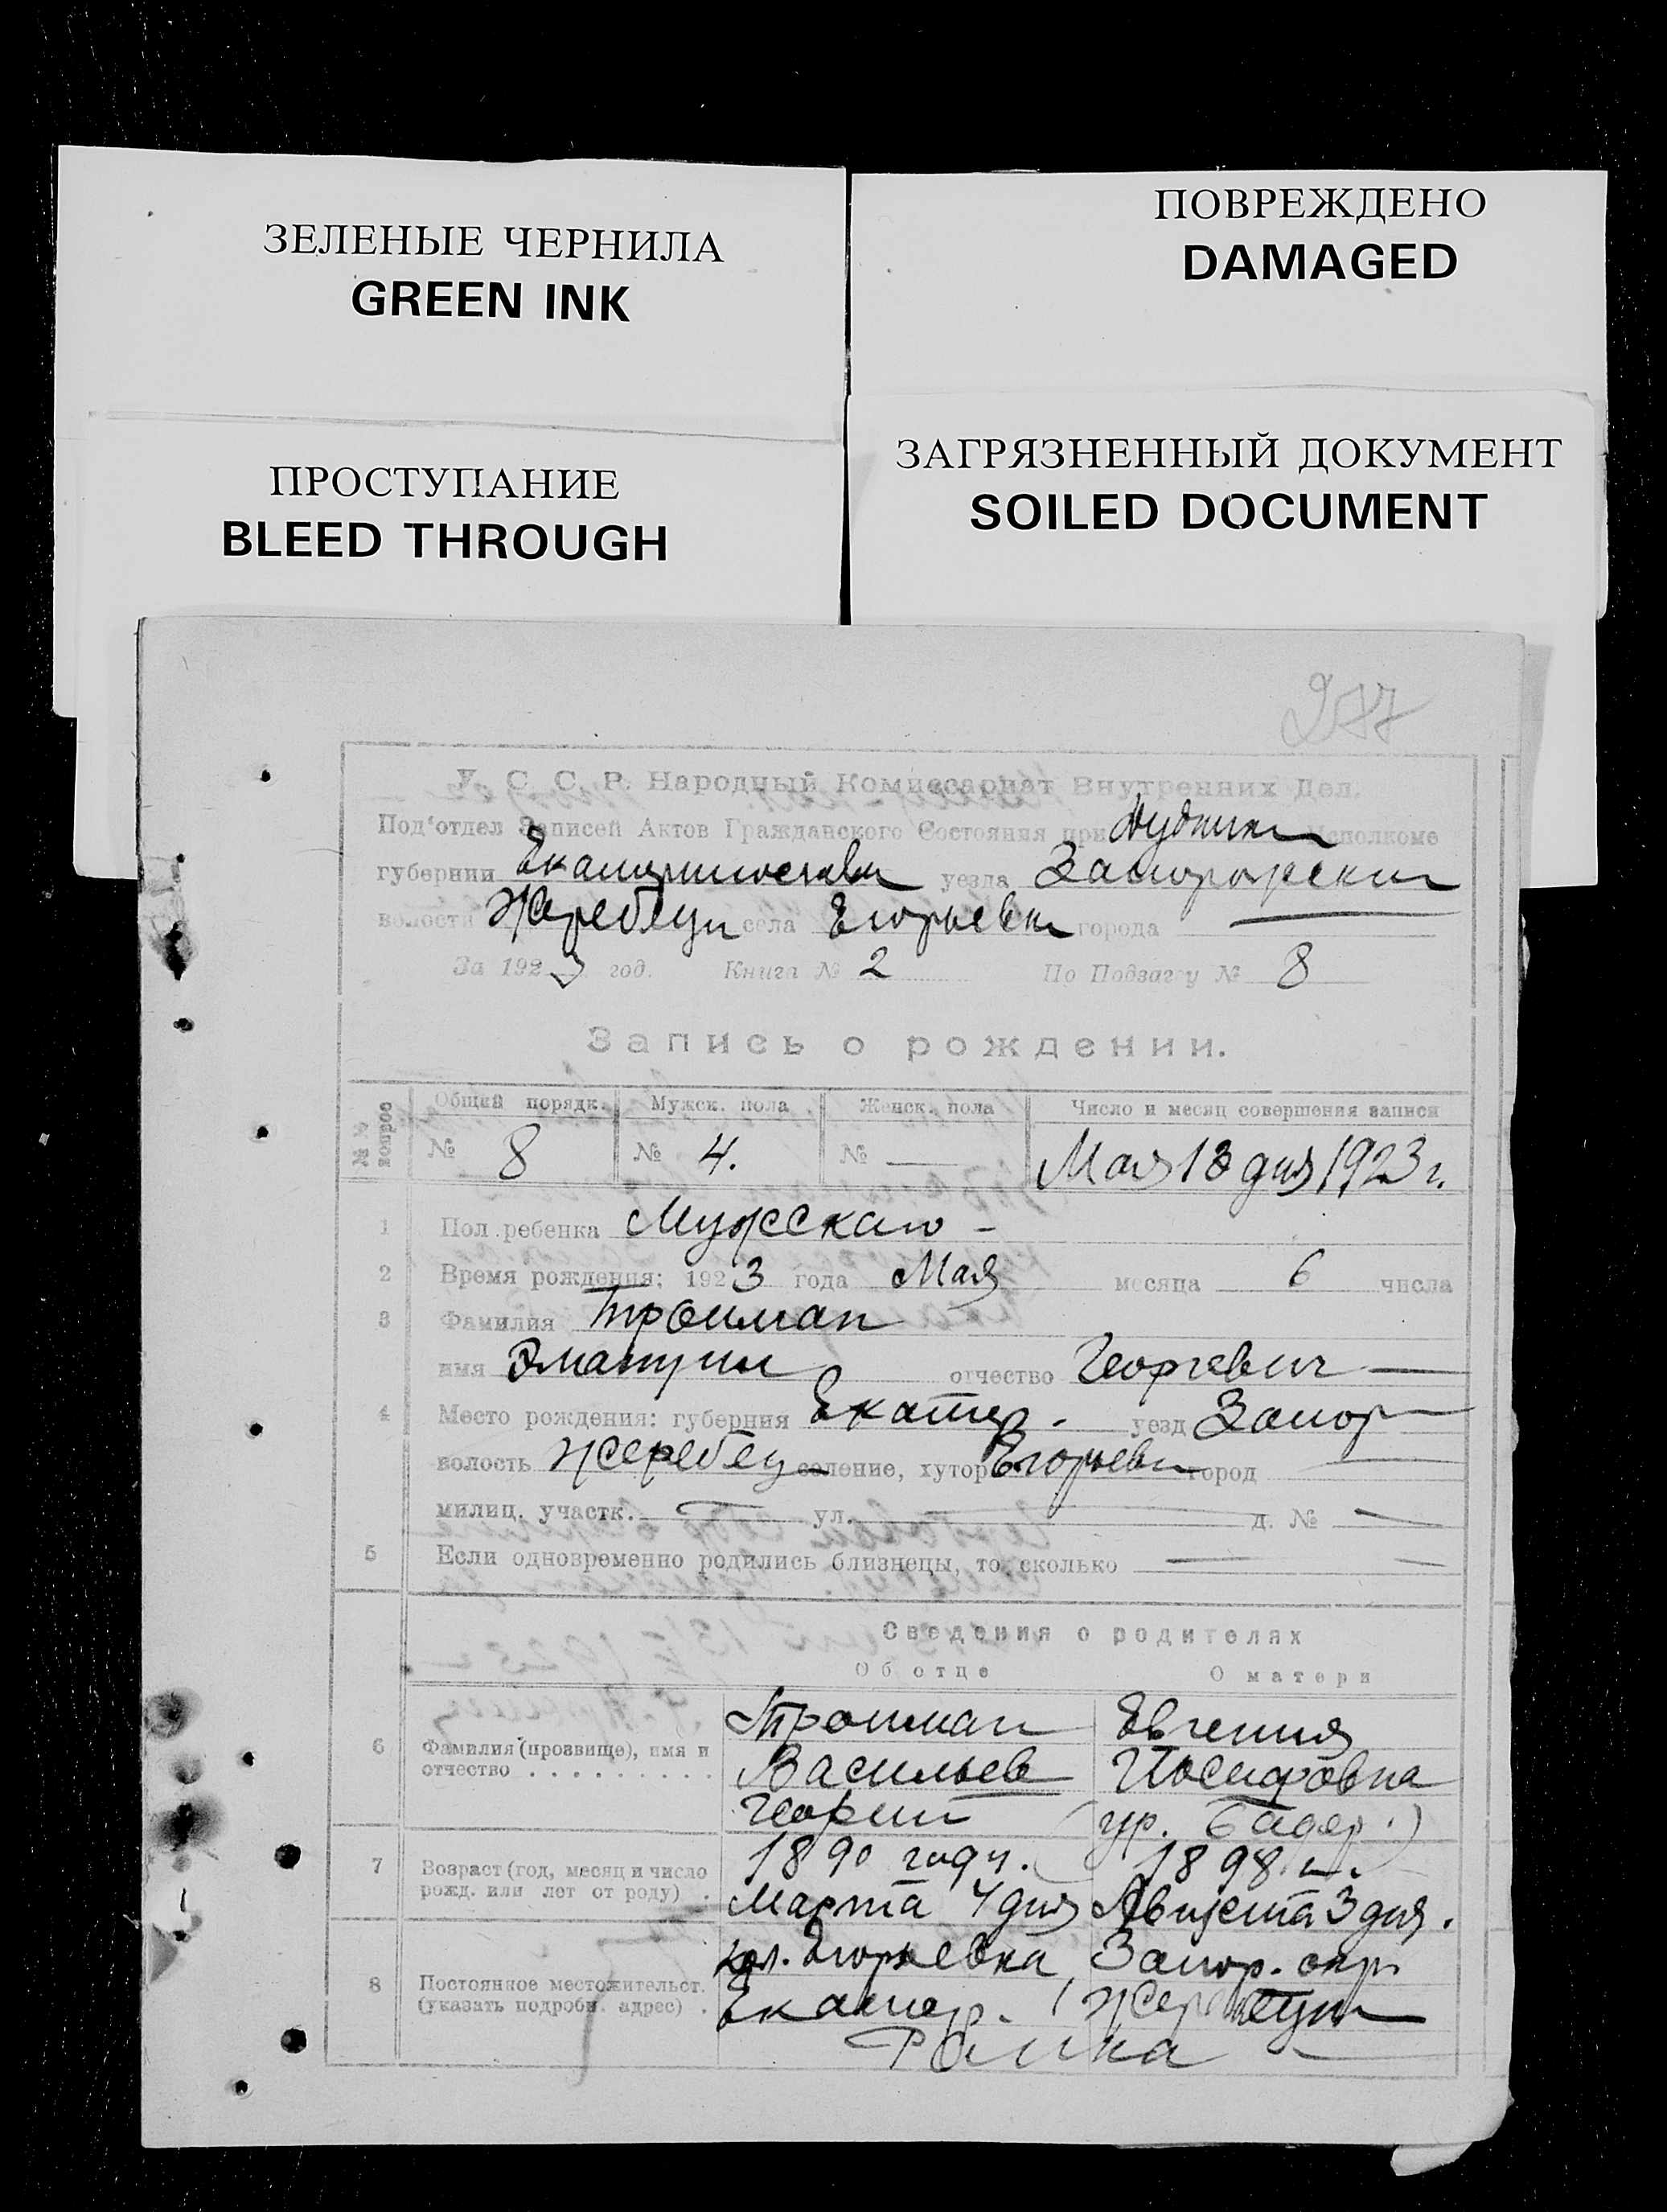 ЗЕЛЕНЫЕ ЧЕРНИЛА
GREEN INK
ПОВРЕЖДЕНО
DAMAGED
ПРОСТУПАНИЕ
BLEED THROUGH
ЗАГРЯЗНЕННЫЙ ДОКУМЕНТ
SOILED DOCUMENT
277
У. С. С. Р. Народный Комиссариат Внутренних Дел.
Под'отдел Записей Актов Гражданского Состояния при Исполкоме
губернии Екатеринославск уезда Запорожский
волости Жеребецк села Егорьевка города —
За 1923 год. Книга № 2 По Подзагсу № 8
Запись о рождении.
№№ вопрос
Общий порядк. Мужск. пола Женск. пола Число и месяц совершения записи
№ 8 № 4. № — Мая 13 дня 1923 г.
1 Пол ребенка Мужскаго -
2 Время рождения: 1923 года Мая месяца 6 числа
3 Фамилия Тройман
имя Эмануил отчество Георгевич —
4 Место рождения: губерния Екатер. уезд Запор
волость Жеребец селение, хутор Егорьевк город —
милиц. участк. — ул. — д. № —
5 Если одновременно родились близнецы, то сколько —
Сведения о родителях
Об отце О матери
6 Фамилия (прозвище), имя и отчество . . . . . . . . .
Тройман Евгения
Васильев Иосифовна
Георгий (ур. Бадер.)
7 Возраст (год, месяц и число рожд. или лет от роду) .
1890 году. 1898 г.
Марта 4 дня Августа 3 дня.
8 Постоянное местожительст. (указать подробн. адрес) .
кол. Егорьевка, Запор. окр.
Екатер. Жеребецк